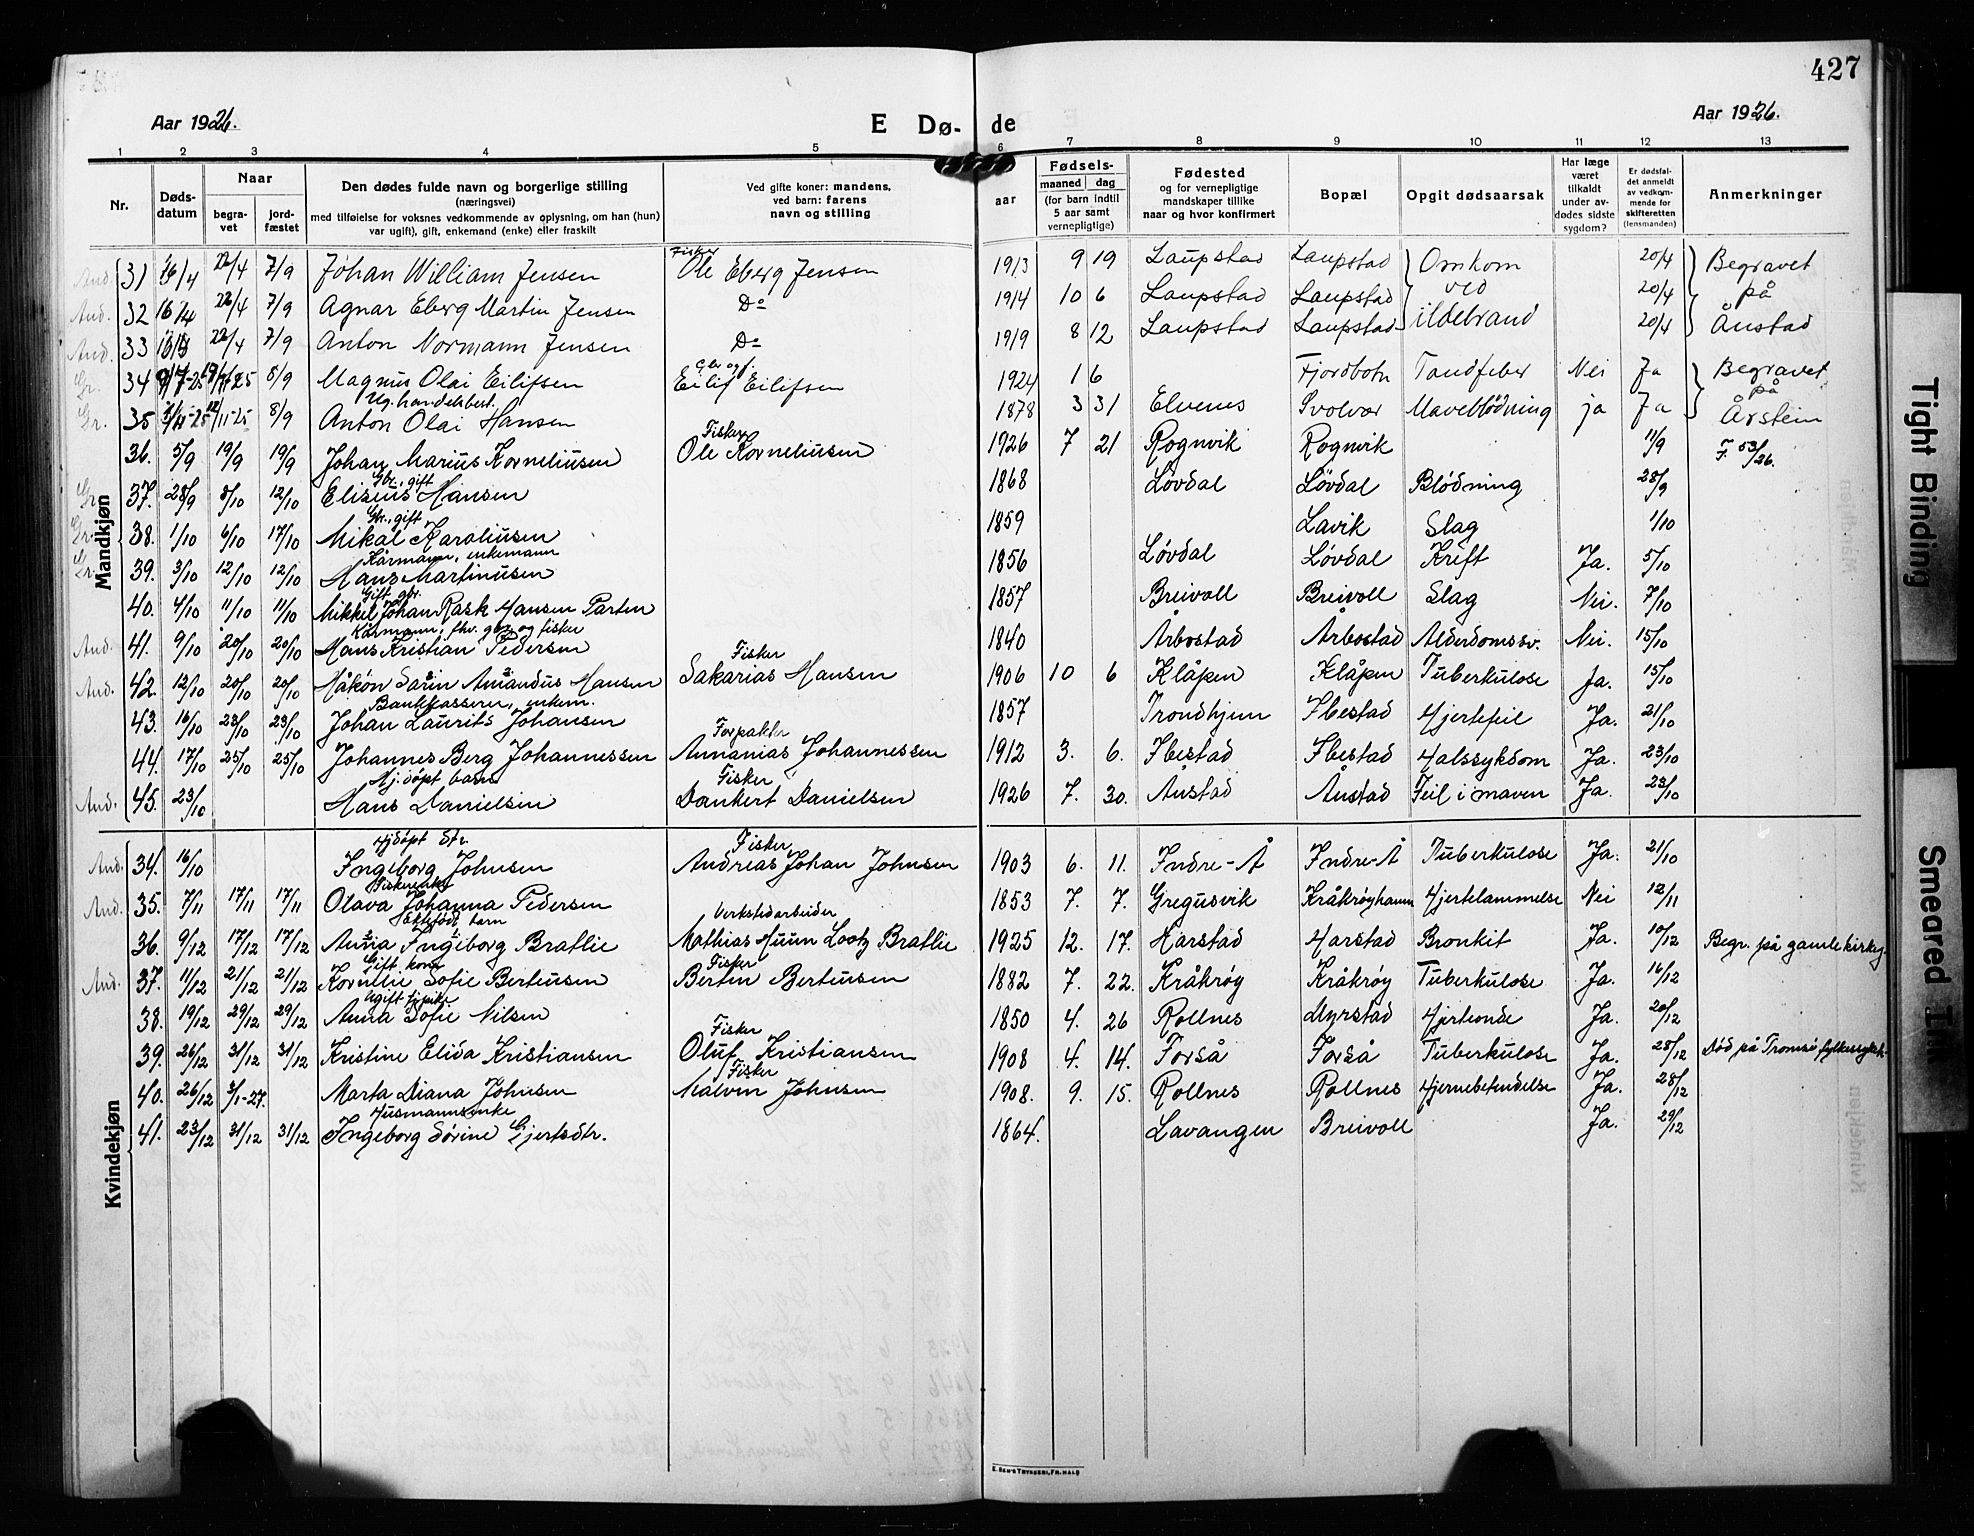 427
Aar 1926.
E Dø- de
Aar 1926.
1 2 3 4 5 6 7 8 9 10 11 12 13
Nr.
Døds-datum
Naar
begra-vet
jord-fæstet
Den dødes fulde navn og borgerlige stilling
(næringsvei)
med tilføielse for voksnes vedkommende av oplysning, om han (hun)
var ugift), gift, enkemand (enke) eller fraskilt
Ved gifte koner: mandens,
ved barn: farens
navn og stilling
aar
Fødsels-
maaned dag
(for barn indtil
5 aar samt
vernepligtige)
Fødested
og for vernepligtige
mandskaper tillike
naar og hvor konfirmert
Bopæl
Opgit dødsaarsak
Har læge
været
tilkaldt
under av-
dødes sidste
sygdom?
Er dødsfal-
det anmeldt
av vedkom-
mende for
skifteretten
(lensmanden)
Anmerkninger
Mandkjøn
And. 31 16/4 22/4 7/9 Johan William Jensen Fisker Ole Eberg Jensen 1913 9 19 Laupstad Laupstad Omkom 20/4 Begravet
And. 32 16/4 22/4 7/9 Agnar Eberg Martin Jensen Do 1914 10 6 Laupstad Laupstad ved 20/4 på
And. 33 22/4 7/9 Anton Normann Jensen Do 1919 8 12 Laupstad Laupstad ildebrand 20/4 Ånstad
Gr. 34 8/9 Magnus Olai Eilifsen Gbr og f. Eilif Eilifsen 1924 1 6 Fjordbotn Tandfeber Nei Ja Begravet
på
Gr. 35 8/9 Ug. handelsbest. Anton Olai Hansen 1878 3 31 Elvenes Svolvær Maveblødning ja Ja Årstein
36. 5/9 19/9 19/9 Johan Marius Korneliusen Fisker Ole Korneliusen 1926 7 21 Rognvik Rognvik 11/9 F. 53/26.
Gr. 37. 28/9 8/10 12/10 Gbr., gift Elizeus Hansen 1868 Løvdal Løvdal Blødning 28/9
Gr. 38. 1/10 6/10 17/10 Gbr., gift Mikal Karoliusen 1859 Lavik Slag 1/10
Gr. 39. 3/10 12/10 12/10 Kårmann, enkemann Hans Martinusen 1856 Løvdal Løvdal Kreft Ja. 5/10
40. 4/10 11/10 11/10 Gift gbr. Mikkel Johan Rask Hansen Parten 1857 Breivoll Breivoll Slag Nei. 7/10
And. 41. 9/10 20/10 20/10 Kårmann, fhv. gbr og fisker Hans Kristian Pedersen 1840 Årbostad Årbostad Alderdomssv. Nei. 15/10
And. 42. 12/10 20/10 20/10 Håkon Sarin Amandus Hansen Fisker Sakarias Hansen 1906 10 6 Klåpen Klåpen Tuberkulose Ja. 15/10
43. 16/10 23/10 23/10 Bankkasserer, enkem. Johan Laurits Johansen 1857 Trondhjem Ibestad Hjertefeil Ja. 21/10
44. 17/10 25/10 25/10 Johannes Berg Johannessen Forpakter Annanias Johannessen 1912 3. 6. Ibestad Ibestad Halssykdom Ja. 23/10
And. 45. 23/10 Hj. døpt barn Hans Danielsen Fisker Dankert Danielsen 1926 7. 30. Ånstad Ånstad Feil i maven Ja. 23/10
Kvindekjøn
And. 34. 16/10 Hjdøpt Ingeborg Johnsen Fisker Andreas Johan Johnsen 1903 6. 11. Indre-Å Indre-Å Tuberkulose Ja. 21/10
And. 35. 7/11 17/11 17/11 Fiskerenke Olava Johanna Pedersen 1853 7. 7. Gregusvik Kråkrøyhamn Hjertelammelse Nei 12/11
36. 9/12 17/12 17/12 Ektefødt barn Anna Ingeborg Bratlie Verkstedarbeider Mathias Huun Lootz Bratlie 1925 12. 17. Harstad Harstad Bronkit Ja. 10/12 Begr. på gamle kirkeg.
And. 37. 11/12 21/12 21/12 Gift kone Kornelie Sofie Berteusen Fisker Bertin Berteusen 1882 7. 22. Kråkrøy Kråkrøy Tuberkulose Ja. 16/12
38. 19/12 29/12 29/12 Ugift pike Anna Sofie Nilsen 1850 4. 26 Rollnes Myrstad Hjerteonde Ja. 20/12
39. 26/12 31/12 31/12 Kristine Elida Kristiansen Fisker Oluf Kristiansen 1908 4. 14. Forså Forså Tuberkulose Ja. 28/12 Død på Tromsø fylkessykeh.
40. 26/12 3/1-27. Marta Diana Johnsen Fisker Malvin Johnsen 1908. 9. 15. Rollnes Rollnes Hjernebetendelse Ja. 28/12
41. 23/12 31/12 31/12 Husmannsenke Ingeborg Sørine Gjertsdtr. 1864. Lavangen Breivoll Ja. 29/12
E. SEM'S TRYKKERI, FR.HALD
Tight Binding
Smeared Ink